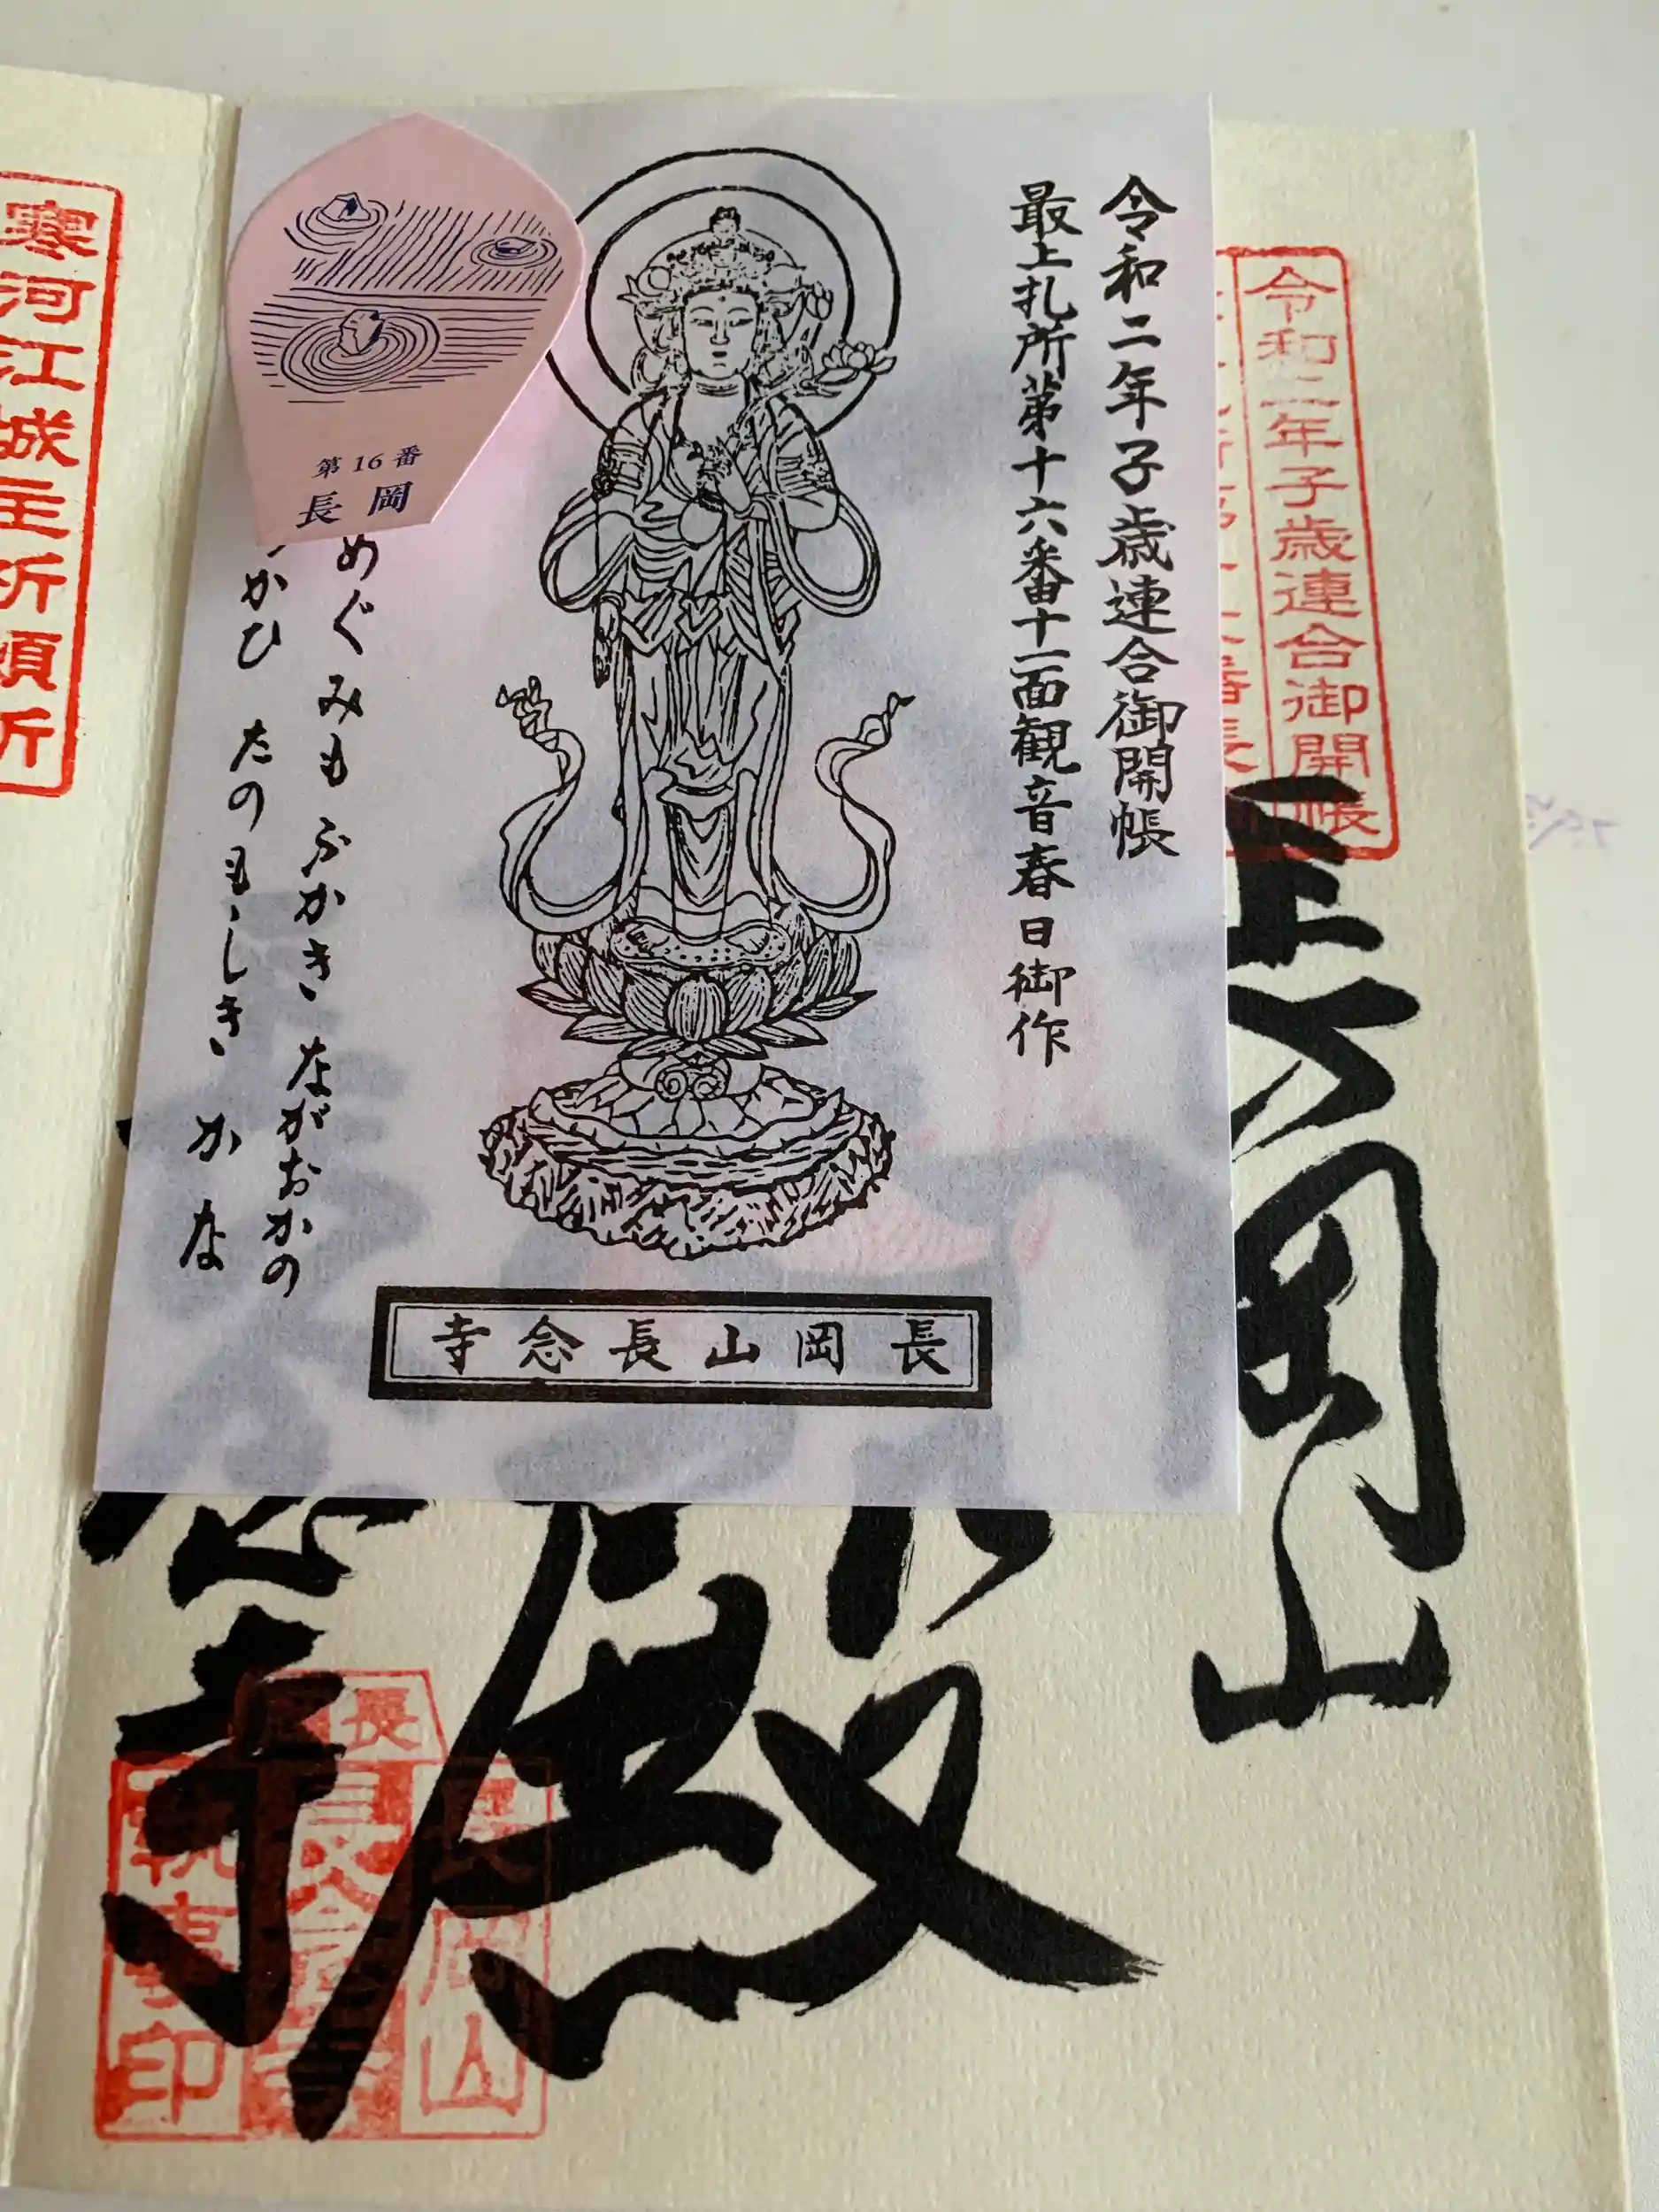 令和二年子歳連合御開帳
最上札所第十六番十一面観音春日御作
めぐみも ふかき ながおかの
かひ たのもしき かな
長岡山長念寺
第16番
長岡
令和二年子歳連合御開帳
長岡山
殿
念寺
長
長岡山
長念寺
執事印
寒河江城主祈願所